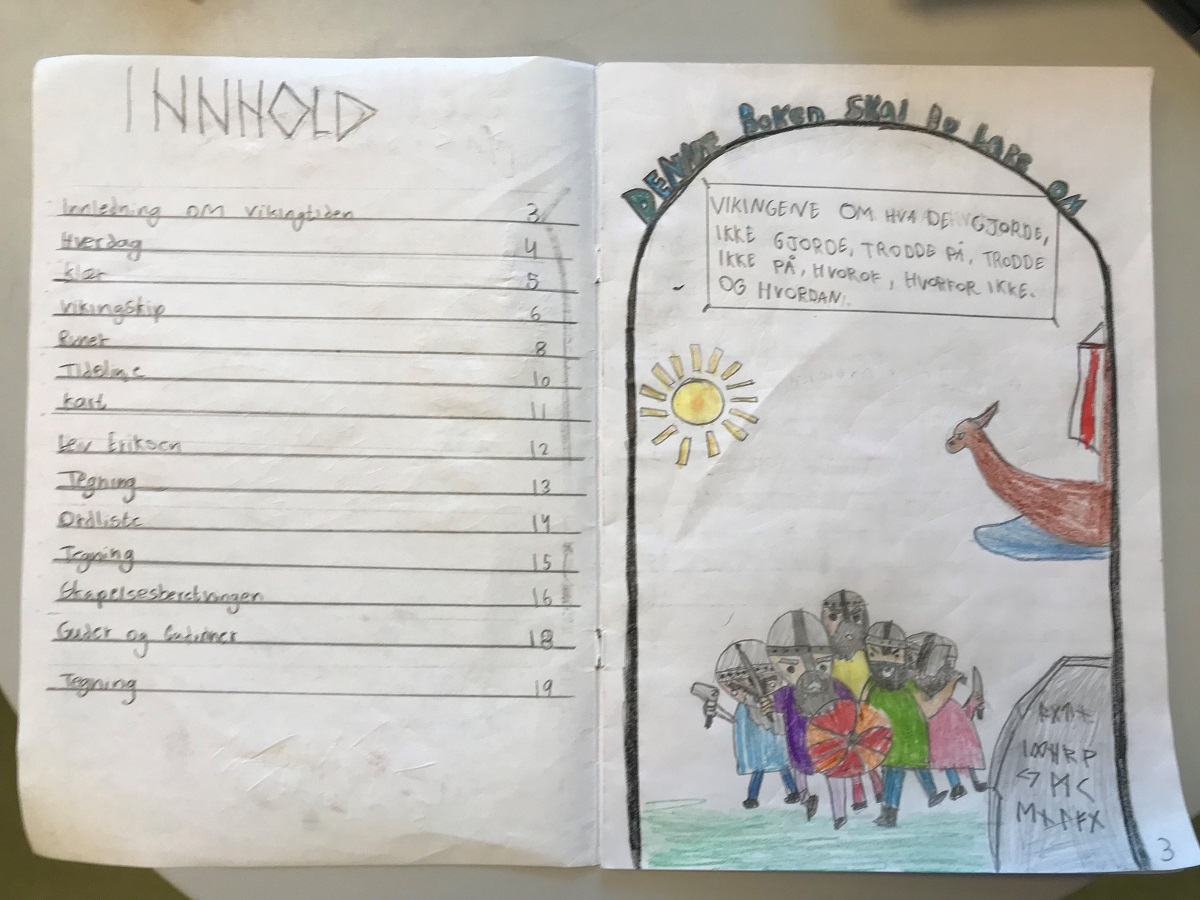 INNHOLD
Innledning om vikingtiden 3
Hverdag 4
Klær 5
Vikingskip 6
Runer 8
Tidslinje 10
Kart 11
Leiv Erikson 12
Tegning 13
Ordliste 14
Tegning 15
Skapelsesberetningen 16
Guder og 18
Tegning 19
DENNE BOKEN SKAL DU LÆRE OM
VIKINGENE OM HVA DE GJORDE,
IKKE GJORDE, TRODDE PÅ, TRODDE
IKKE PÅ, HVOROF, HVORFOR IKKE.
OG HVORDAN.
3